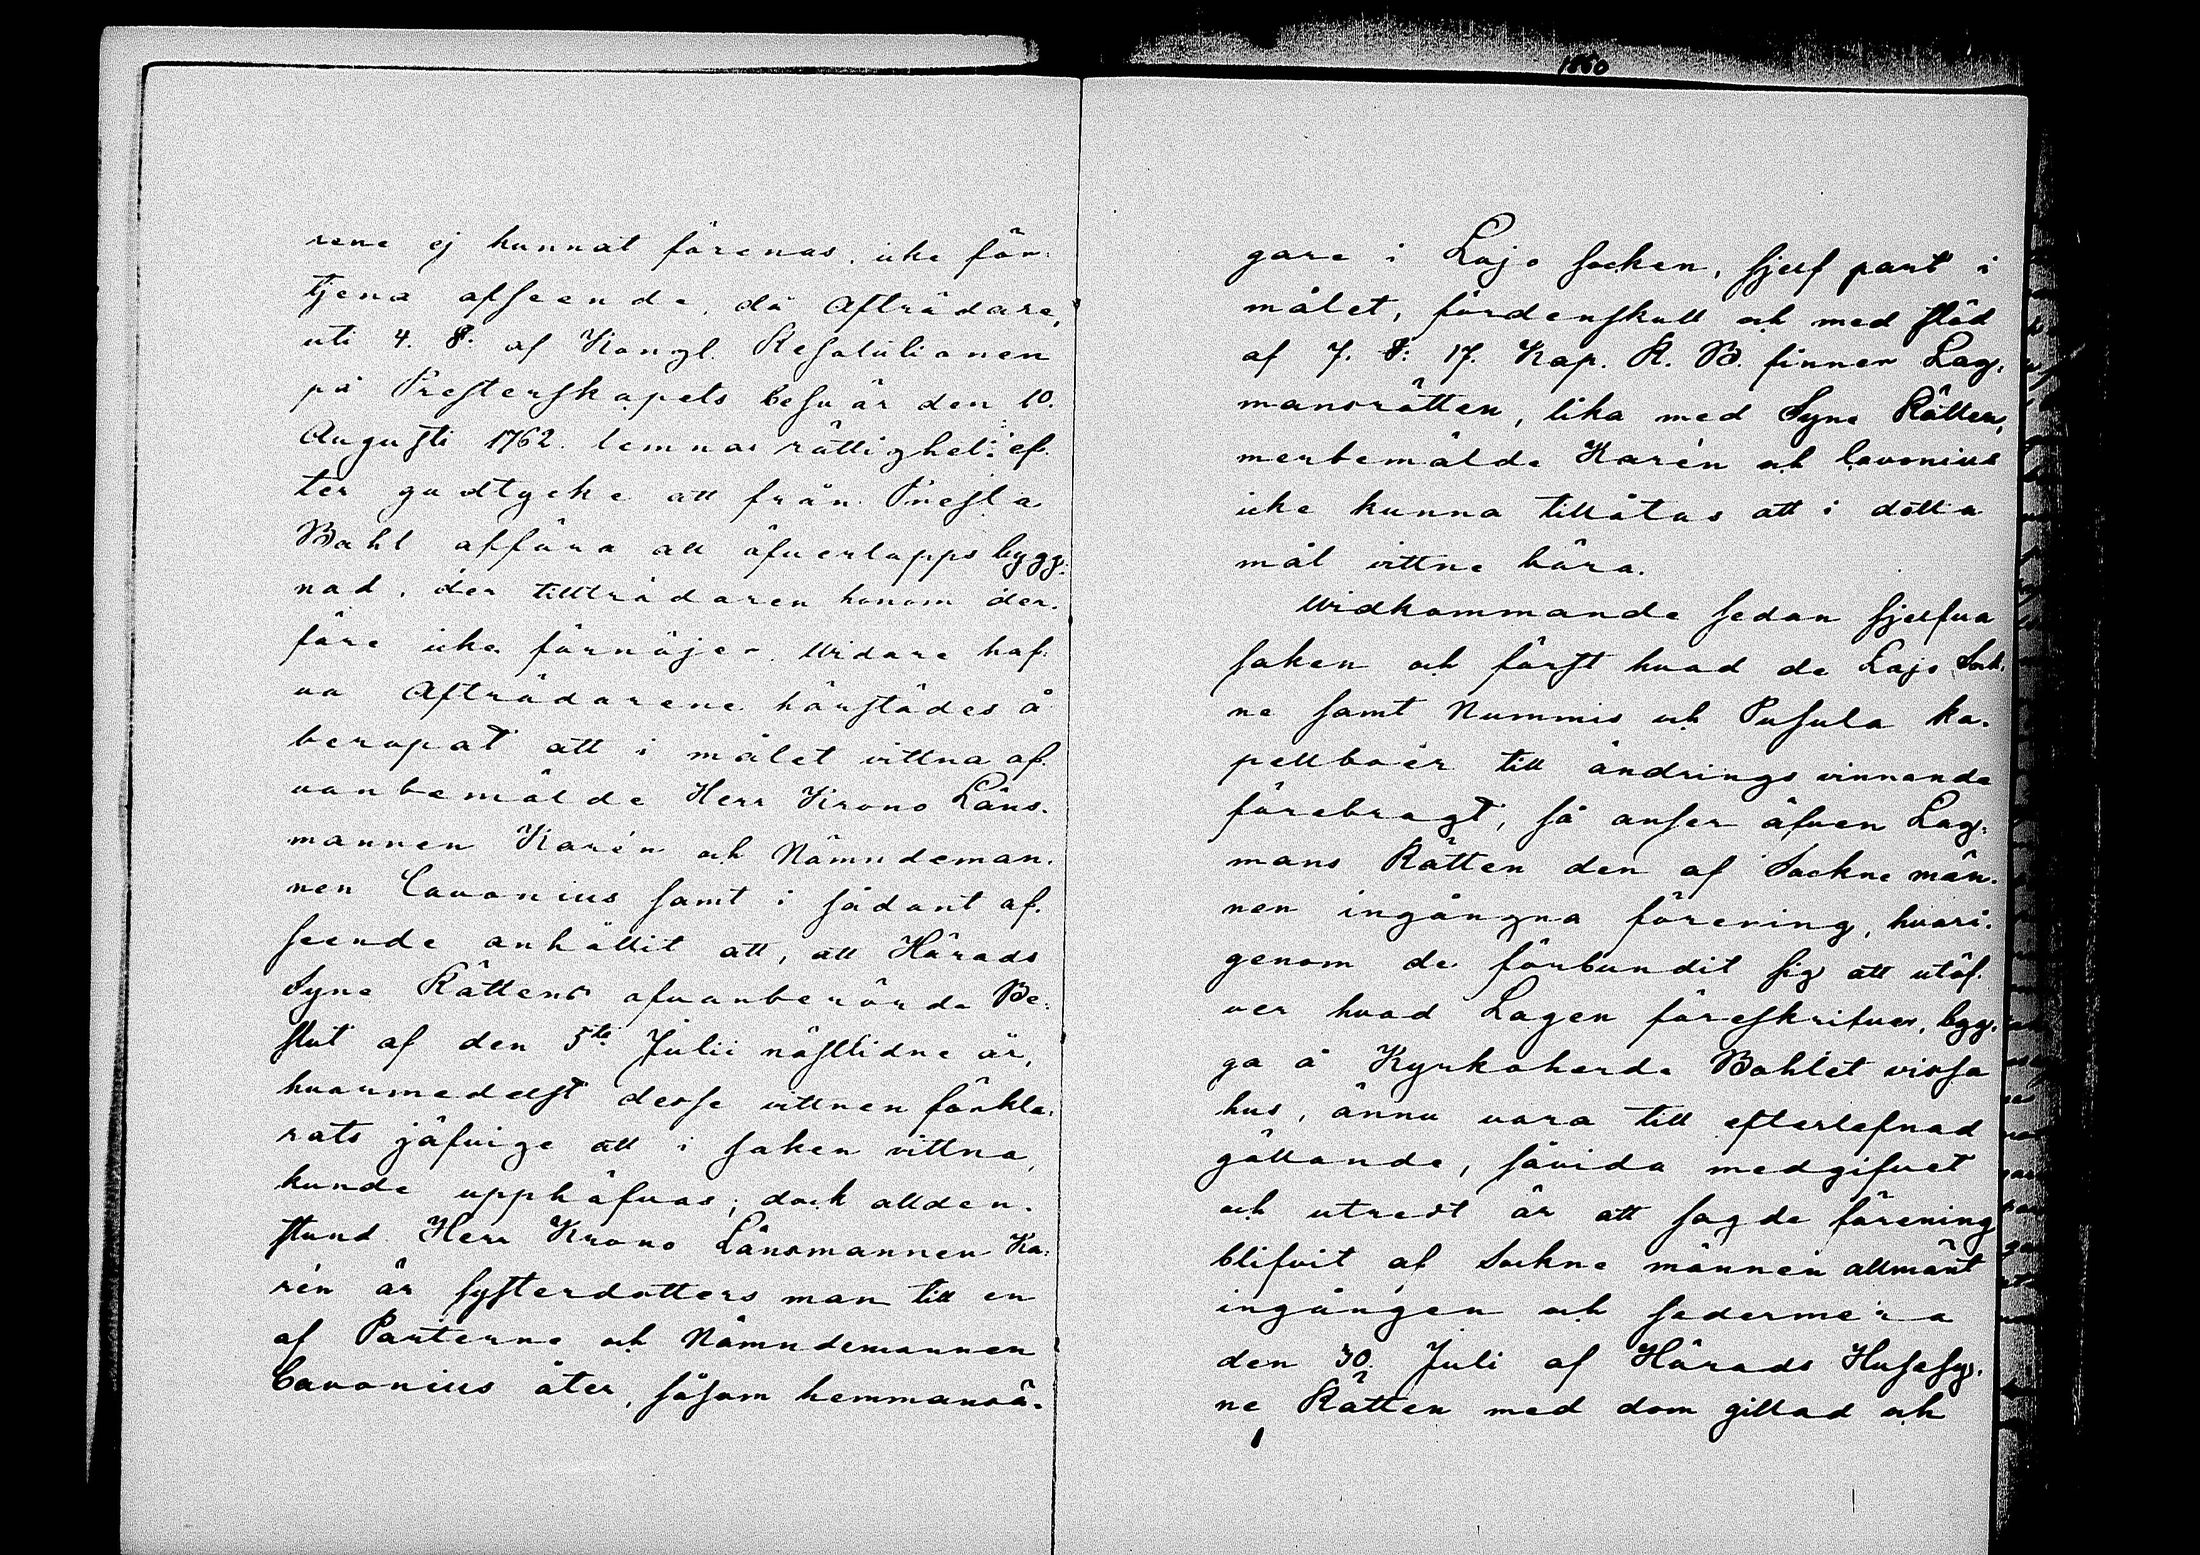 1860
rene ej kunnat förenas, icke för-
tjena afseende, då Afträdare,
uti 4. §. af Kongl. Resolutionen
på Presterskapets besvär den 10.
Augusti 1762 lemnas rättighet ef-
ter godtycke att från Presta
Bohl afföra all öfverlopps bygg-
nad, den tillträdaren honom der-
före icke förnöjer. Widare haf-
va Afträdarene härstädes å
beropat att i målet vittna of-
vanbemälde Herr Krono Läns-
mannen Karén och Nämndeman-
nen Cavonius samt i sådant af-
seende anhållit att, att Härads
Syne Rättens ofvanberörde Be-
slut af den 5te Julii nästlidne år,
hvarmedelst desse vittnen förkla-
rats jäfvige att i saken vittna,
kunde upphäfvas; dock allden-
stund Herr Krono Länsmannen Ka-
rén är systerdotters man till en
af Parterne och Nämndemannen
Cavonius åter, såsom hemmansä-
gare i Lojo socken, sjelf part i
målet, fördenskull och med stöd
af 7. §: 17. Kap. R. B. finner Lag-
mansrätten, lika med Syne Rätten,
merbemälde Karén och Cavonius
icke kunna tillåtas att i detta
mål vittne bära.
Widkommande sedan sjelfva
saken och först hvad de Lojo Sock-
ne samt Nummis och Pusula ka-
pellboer till ändrings vinnande
förebragt, så anser äfven Lag-
mans Rätten den af Sockne män-
nen ingångna förening, hvari-
genom de förbundit sig att utöf-
ver hvad Lagen föreskrifver, byg-
ga å Kyrkoherde Bohlet vissa
hus, ännu vara till efterlefnad
gällande, såvida medgifvet
och utredt är att sagde förening
blifvit af Sockne männen allmänt
ingången och sedermera
den 30. Juli af Härads Husesy-
ne Rätten med dom gillad och